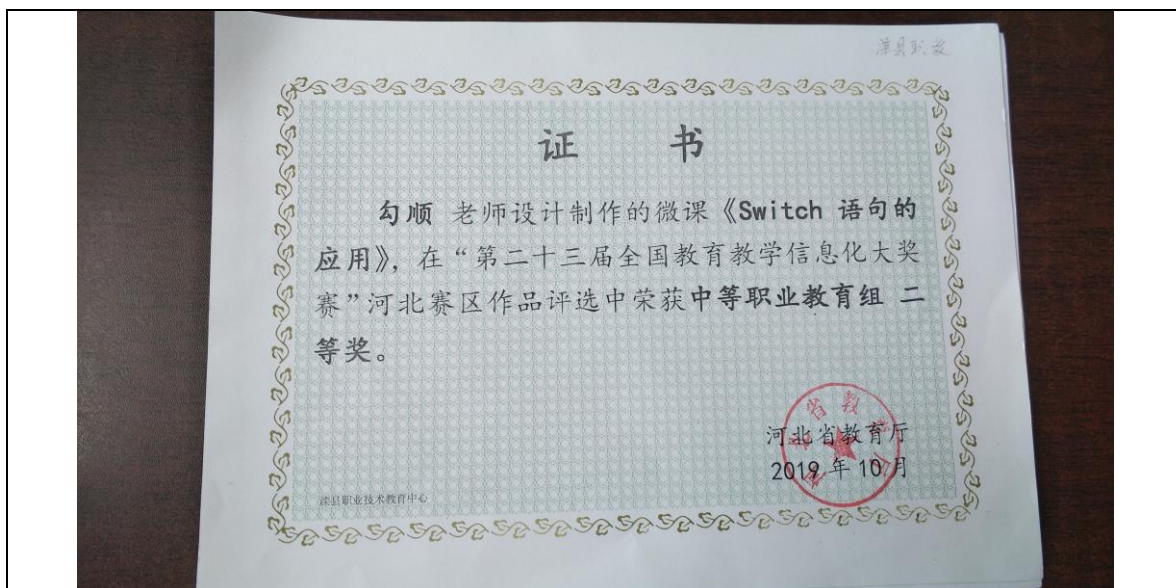 滦县职教
证 书
勾顺 老师设计制作的微课《Switch 语句的
应用》，在“第二十三届全国教育教学信息化大奖
赛”河北赛区作品评选中荣获中等职业教育组 二
等奖。
河北省教育厅
2019 年 10 月
滦县职业技术教育中心